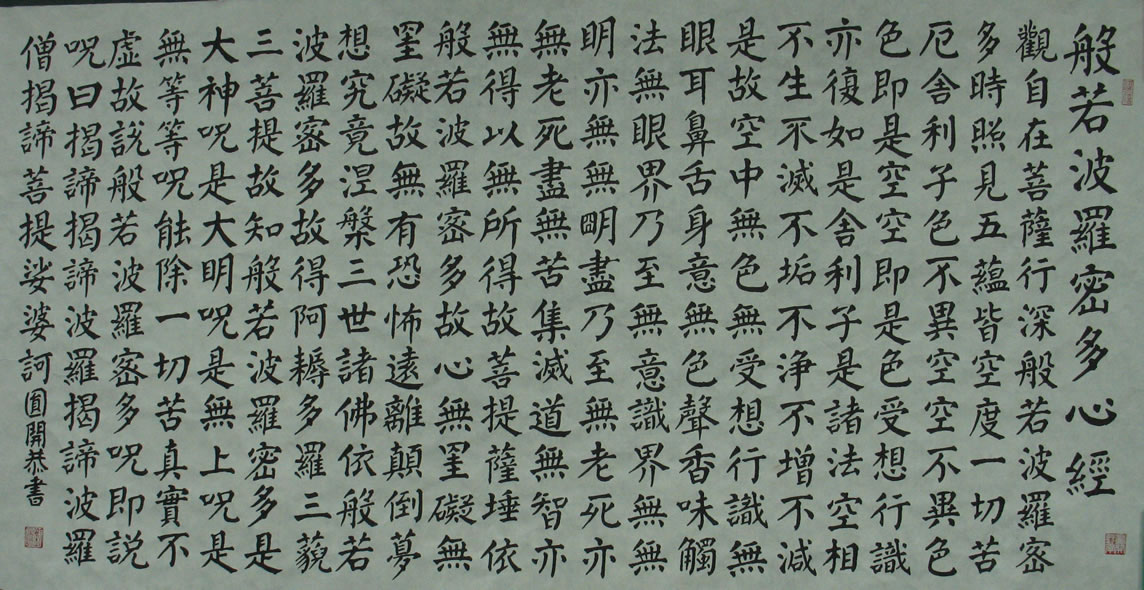 般若波羅密多心經
觀自在菩薩行深般若波羅密
多時照見五蘊皆空度一切苦
厄舍利子色不異空空不異色
色即是空空即是色受想行識
亦復如是舍利子是諸法空相
不生不滅不垢不淨不增不減
是故空中無色無受想行識無
眼耳鼻舌身意無色聲香味觸
法無眼界乃至無意識界無無
明亦無無明盡乃至無老死亦
無老死盡無苦集滅道無智亦
無得以無所得故菩提薩埵依
般若波羅密多故心無罣礙無
罣礙故無有恐怖遠離顛倒夢
想究竟涅槃三世諸佛依般若
波羅密多故得阿耨多羅三藐
三菩提故知般若波羅密多是
大神呪是大明呪是無上呪是
無等等呪能除一切苦真實不
虛故說般若波羅密多呪即説
呪曰揭諦揭諦波羅揭諦波羅
僧揭諦菩提娑婆訶圓開恭書